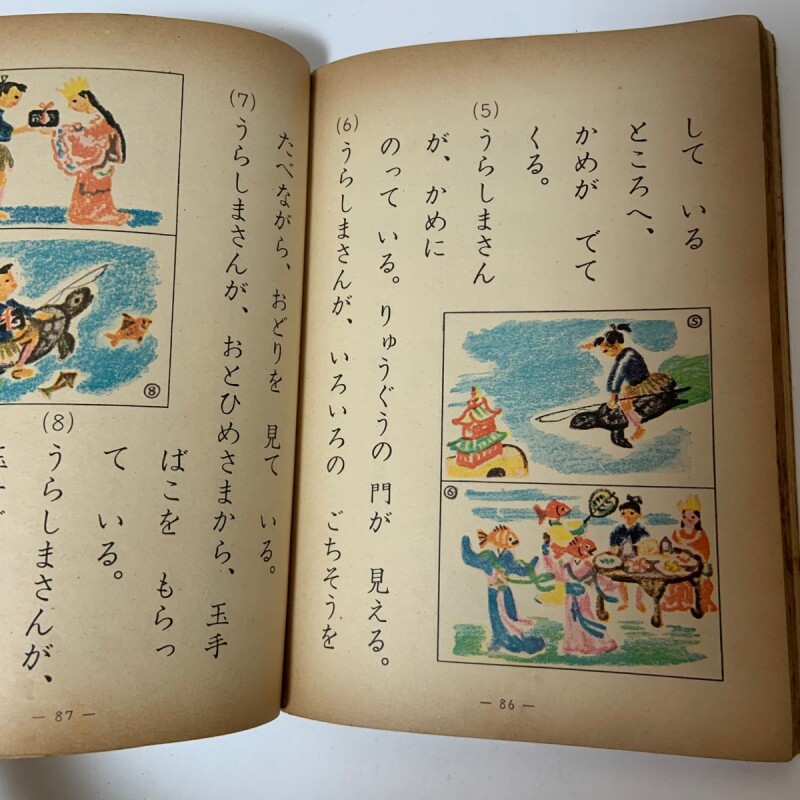 して いる
ところへ、
かめが でて
くる。
(5)
うらしまさん
が、かめに
のって いる。りゅうぐうの 門が 見える。
(6)
うらしまさんが、いろいろの ごちそうを
⑤
⑥
— 86 —
たべながら、おどりを 見て いる。
(7)
うらしまさんが、おとひめさまから、玉手
ばこを もらっ
て いる。
(8)
うらしまさんが、
⑧
— 87 —